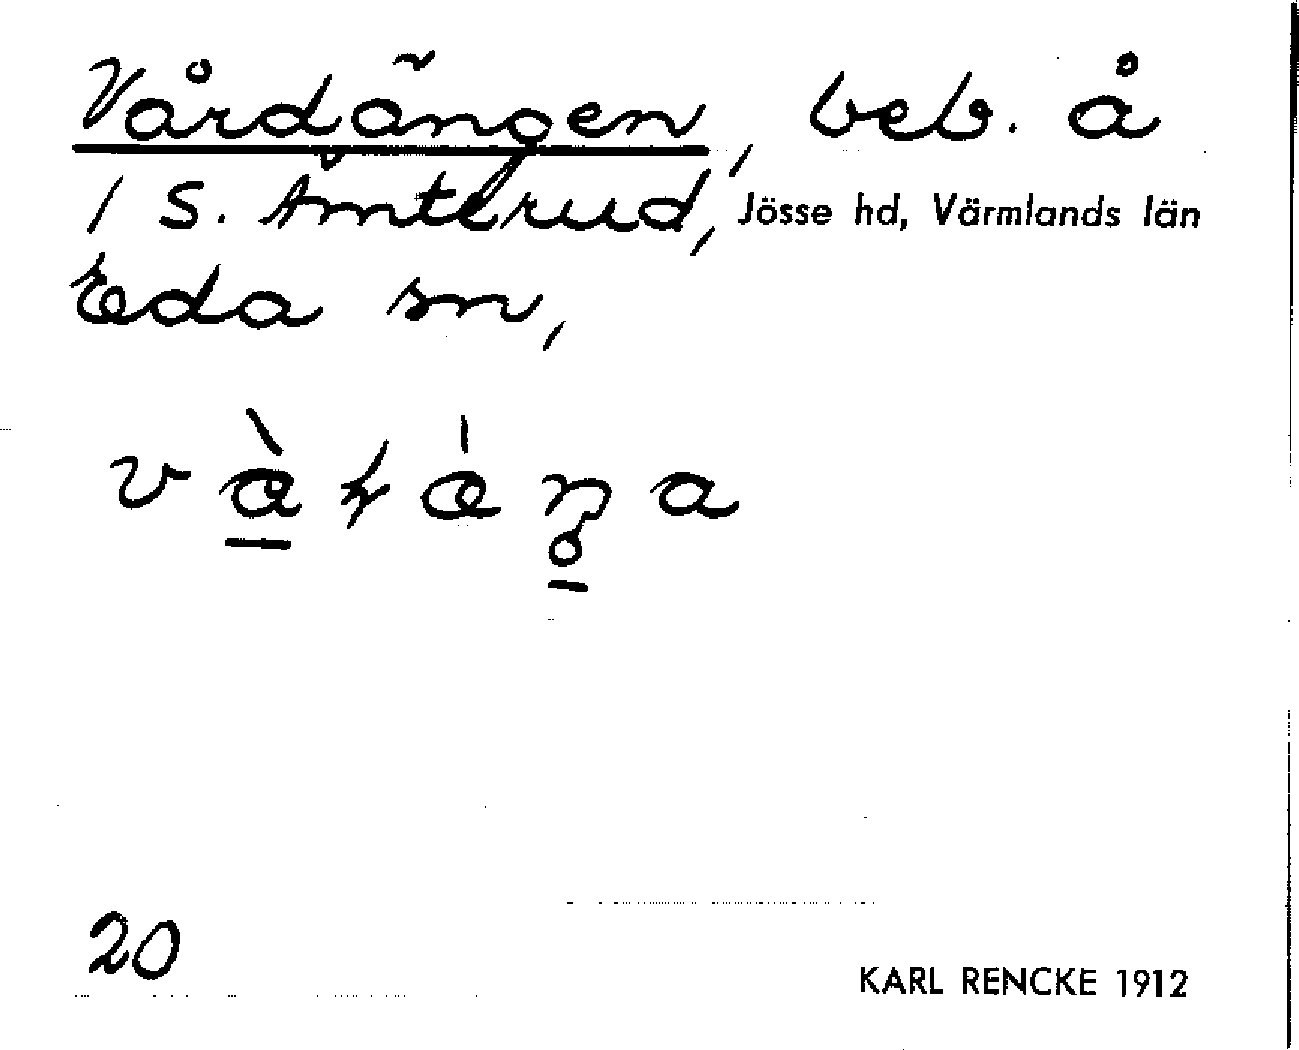 Vårdängen, beb. å
1 S. Ämterud, Jösse hd, Värmlands län
Eda sn,
20
KARL RENCKE 1912